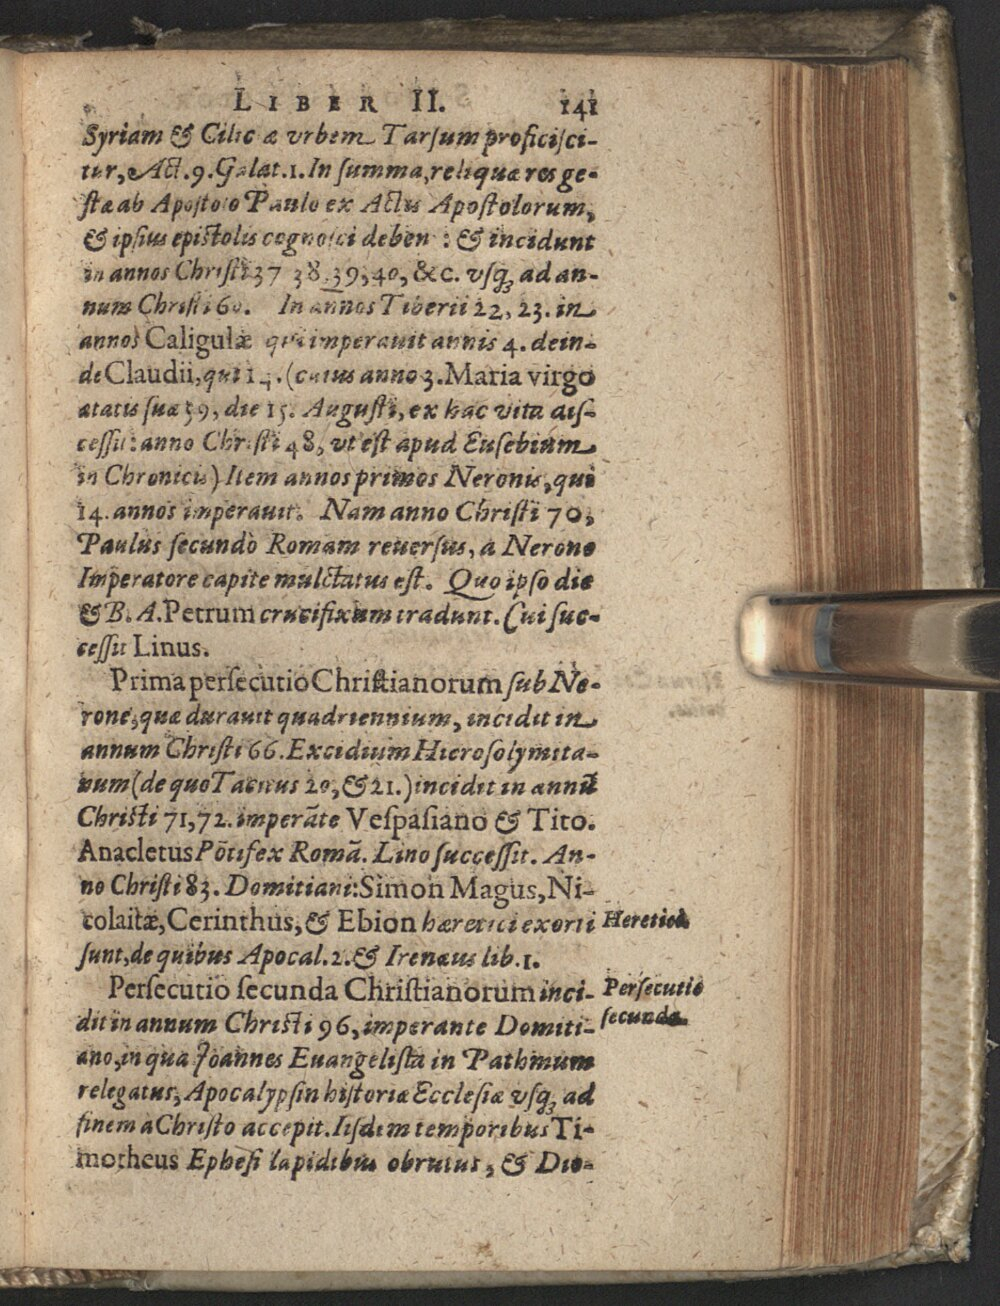 LIBER II. 141
Syriam & Cilic æ vrbem Tarſum proficiſci-
tur, Act. 9. Galat. 1. In ſumma, reliquæ res ge-
ſtæ ab Apoſtolo Paulo ex Actis Apoſtolorum,
& ipſius epiſtolis cognoſci deben : & incidunt
in annos Chriſti 37 38. 39, 40, &c. vſq; ad an-
num Chriſti 60. In annos Tiberii 22, 23. in
annos Caligulæ qui imperauit annis 4. dein-
de Claudii, qui 14. (cuius anno 3. Maria virgo
ætatis ſuæ 59, die 15. Auguſti, ex hac vita diſ-
ceſſit: anno Chriſti 48, vt eſt apud Euſebium
in Chronicis) Item annos primos Neronis, qui
14. annos imperauit. Nam anno Chriſti 70,
Paulus ſecundò Romam reuerſus, a Nerone
Imperatore capite mulctatus eſt. Quo ipſo die
& B. A. Petrum crucifixum tradunt. Cui ſuc-
ceſſit Linus.
Prima perſecutio Chriſtianorum ſub Ne-
rone, quæ durauit quadriennium, incidit in
annum Chriſti 66. Excidium Hieroſolymita-
num (de quo Tacitus 20, & 21.) incidit in annũ
Chriſti 71, 72. imperãte Veſpaſiano & Tito.
Anacletus Põtifex Romã. Lino ſucceſſit. An-
no Chriſti 83. Domitiani: Simon Magus, Ni-
colaitæ, Cerinthus, & Ebion hæretici exorti
Heretici
ſunt, de quibus Apocal. 2. & Irenæus lib. 1.
Perſecutio ſecunda Chriſtianorum inci-
Perſecutio
dit in annum Chriſti 96, imperante Domiti-
ſecunda
ano, in qua Joannes Euangeliſta in Pathmum
relegatus, Apocalypſin hiſtoriæ Eccleſiæ vſq; ad
finem a Chriſto accepit. Iiſdem temporibus Ti-
motheus Epheſi lapidibus obrutus, & Dio-